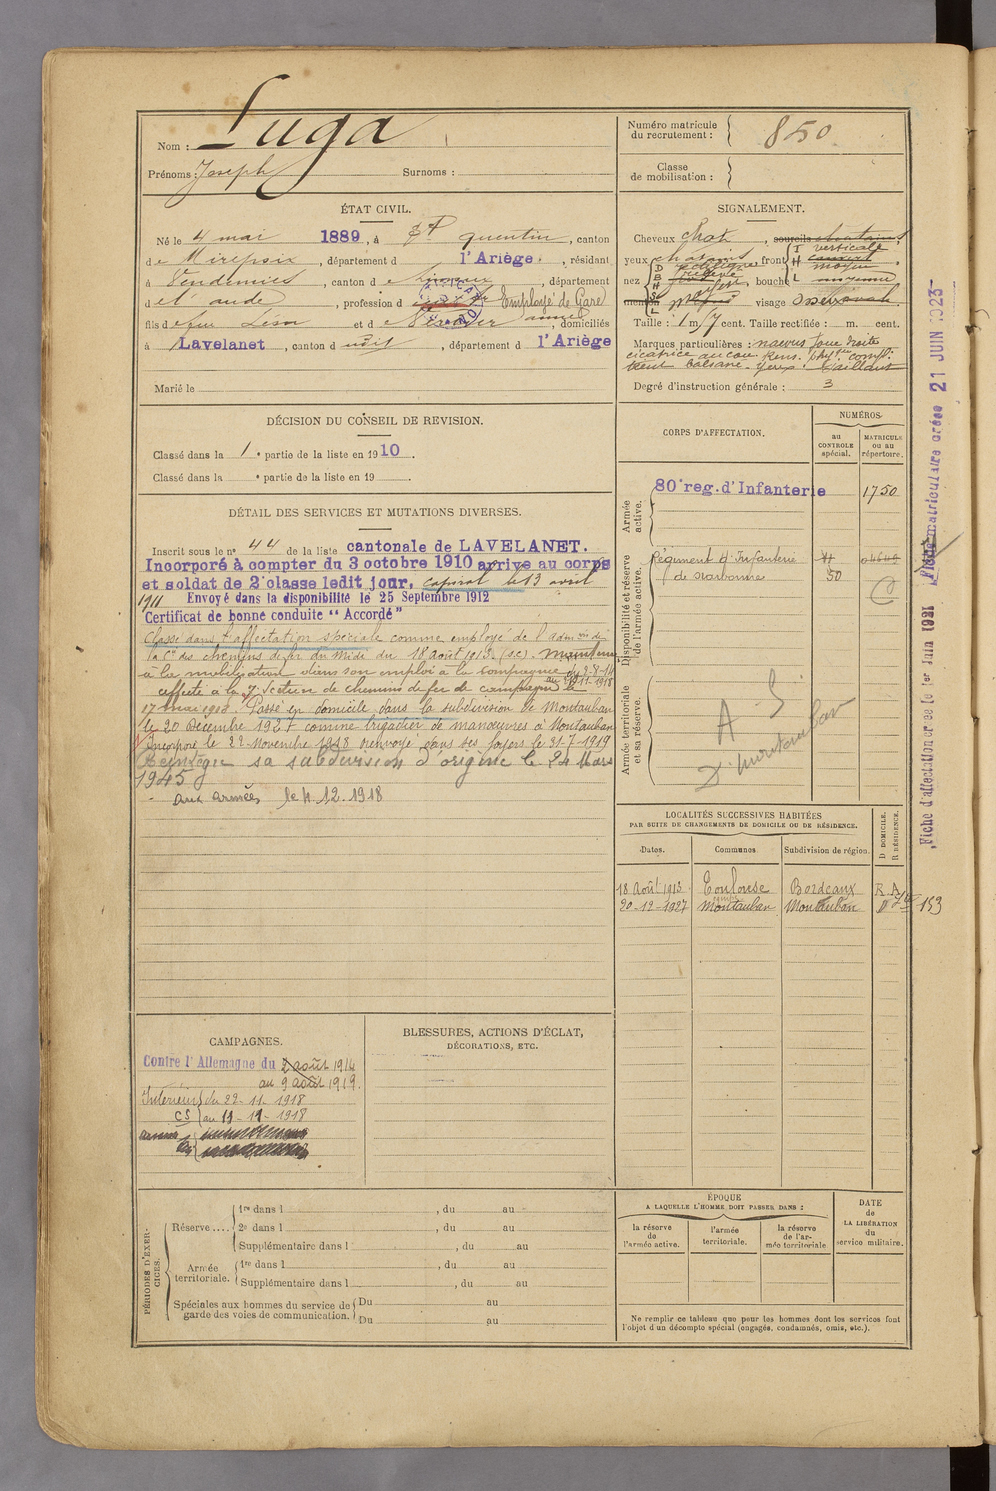 Nom : Luga
Prénoms : Joseph Surnoms :
Numéro matricule du recrutement : 850
Classe de mobilisation :
ÉTAT CIVIL.
Né le 4 mai 1889, à St quentin, canton
de Mirepoix, département d l'Ariège, résidant
à Vendemies, canton de Limoux, département
de l'aude, profession d Employé de Gare
fils de feu Léon et d anne, domiciliés
à Lavelanet, canton d udit, département d l'Ariège
Marié le
SIGNALEMENT.
Cheveux chat, sourcils chatains
yeux chatains, front verticale
nez rectiligne, bouche moyenne
menton visage
Taille : 1 m 57 cent. Taille rectifiée : m. cent.
Marques particulières : naevus joue droite
cicatrice au cou. Rens. phys. compl.
Degré d'instruction générale : 3
DÉCISION DU CONSEIL DE REVISION.
Classé dans la 1e partie de la liste en 1910.
Classé dans la e partie de la liste en 19 .
CORPS D'AFFECTATION.
NUMÉROS
au CONTROLE spécial.
MATRICULE ou au répertoire.
Armée active.
80e reg. d'Infanterie 1750
Disponibilité et réserve de l'armée active.
Régiment d'Infanterie
de Narbonne 50
Armée territoriale et sa réserve.
A S
Dn Montauban
DÉTAIL DES SERVICES ET MUTATIONS DIVERSES.
Inscrit sous le n° 44 de la liste cantonale de LAVELANET.
Incorporé à compter du 3 octobre 1910 arrive au corps
et soldat de 2e classe ledit jour, caporal le 13 avril
1911 Envoyé dans la disponibilité le 25 Septembre 1912
Certificat de bonne conduite "Accordé"
Classé dans l'affectation spéciale comme employé de l'admon de
la Cie des chemins de fer du Midi du 18 août 1913 (s.c.) Maintenu
à la mobilisation dans son emploi à la compagnie du 2-8-14
au 11-1918
affecté à la 7e Section de chemins de fer de campagne le
17 mai 1908. Passé en domicile dans la subdivision de Montauban
le 20 Décembre 1927 comme brigadier de manœuvres à Montauban
Incorporé le 22 Novembre 1918 renvoyé dans ses foyers le 31-7-1919
Réintégré sa subdivision d'origine le 24 Mars
1945
aux armées le 4.12.1918
LOCALITÉS SUCCESSIVES HABITÉES
PAR SUITE DE CHANGEMENTS DE DOMICILE OU DE RÉSIDENCE.
Dates. Communes Subdivision de région. D DOMICILE. R RÉSIDENCE.
18 Août 1913 Toulouse Bordeaux R. A
20-12-1927 Montauban Montauban D 153
CAMPAGNES.
Contre l'Allemagne du 2 août 1914
au 9 août 1919.
Intérieur du 22-11-1918
CS au 11-12-1918
BLESSURES, ACTIONS D'ÉCLAT,
DÉCORATIONS, ETC.
PÉRIODES D'EXERCICES.
Réserve .... 1re dans l , du au
2e dans l , du au
Supplémentaire dans l , du au
Armée territoriale. 1re dans l , du au
Supplémentaire dans l , du au
Spéciales aux hommes du service de garde des voies de communication. Du au
Du au
ÉPOQUE
A LAQUELLE L'HOMME DOIT PASSER DANS :
la réserve de l'armée active.
l'armée territoriale.
la réserve de l'armée territoriale
DATE de LA LIBÉRATION du service militaire.
Ne remplir ce tableau que pour les hommes dont les services font
l'objet d'un décompte spécial (engagés, condamnés, omis, etc.).
Fiche d'affectation créée le 1er Juin 1921
Fiche matriculaire créée 21 JUIN 1923